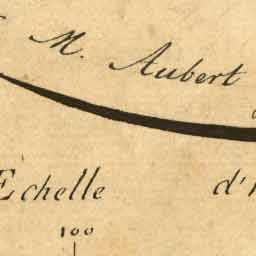 M. Aubert
Echelle
100